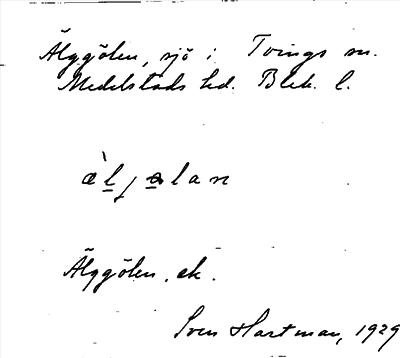 Älggölen, sjö i Tvings sn.
Medelstads hd. Blek. l.
Älggölen. ek.
Sven Hartman, 1929